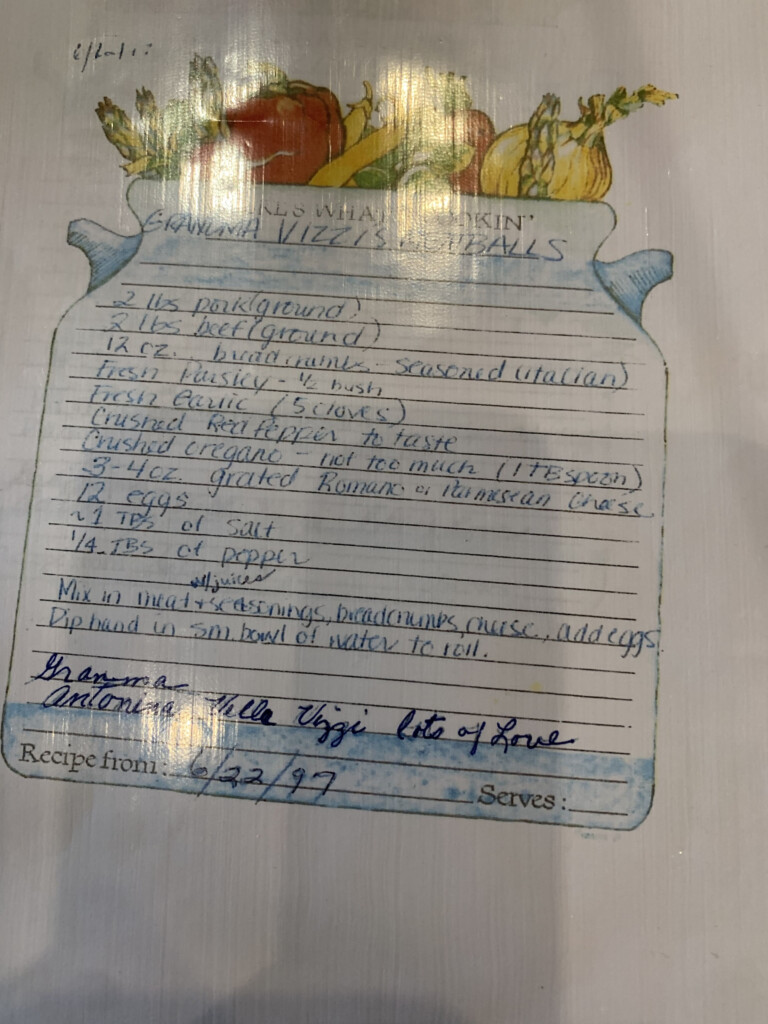 WHAT COOKIN'
GRANDMA VIZZI'S MEATBALLS
2 lbs pork (ground)
2 lbs beef (ground)
12 oz. breadcrumbs - seasoned (italian)
Fresh Parsley - 1/2 bush
Fresh Garlic (5 cloves)
Crushed Red Pepper to taste
Crushed oregano - not too much (1 TBspoon)
3-4 oz. grated Romano or Parmesean Cheese
12 eggs
~1 TBS of salt
1/4 TBS of pepper
w/juices
Mix in meat + seasonings, breadcrumbs, cheese, add eggs.
Dip hand in sm. bowl of water to roll.
Gramma
Antonina Vizzi lots of Love
Recipe from: 6/22/97 Serves: